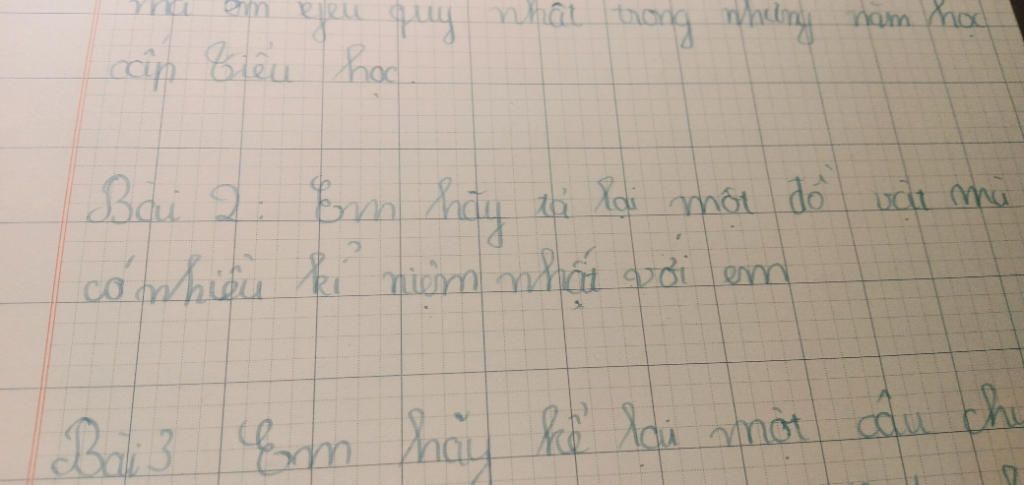 mà em yêu quý nhất trong những năm học
cấp tiểu học.
Bài 2: Em hãy tả lại một đồ vật mà
có nhiều kỉ niệm nhất với em
Bài 3 Em hãy kể lại một câu chu